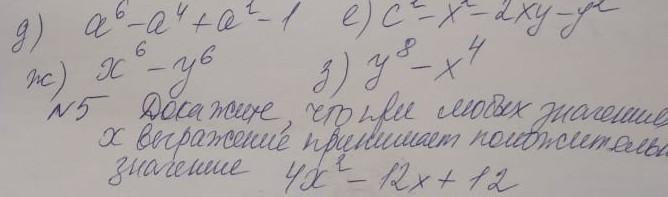 д) a⁶-a⁴+a²-1 е) c²-x²-2xy-y²
ж) x⁶-y⁶ з) y⁸-x⁴
N5 Докажите, что при любых значение
x выражение принимает положительн
значение 4x²-12x+12